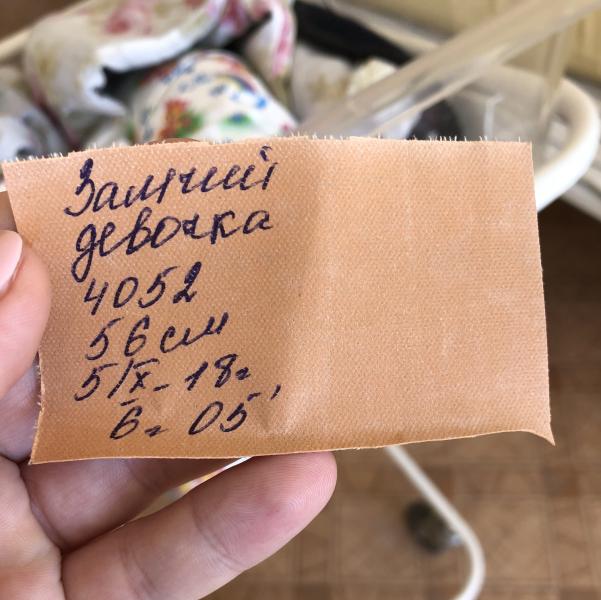 Замчий
девочка
4052
56 см
5/X-18г
6ч 05'